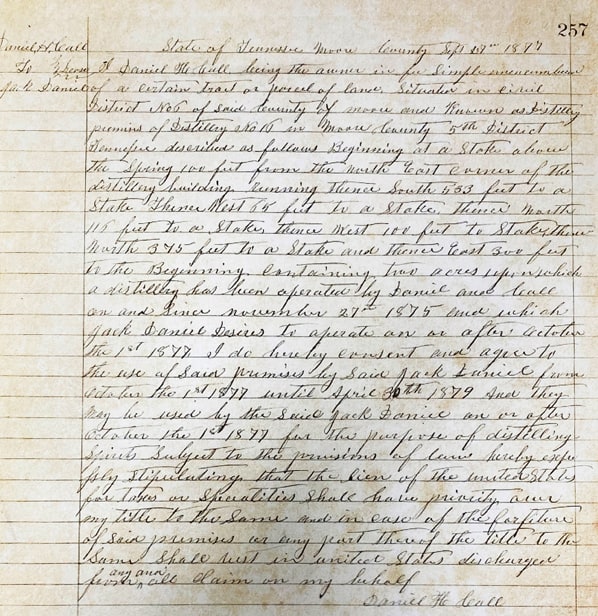 257
Daniel H. Call State of Tennessee Moore County Sept 15th 1877
To } Lease I Daniel H. Call being the owner in fee Simple unencumbered
Jack Daniel of a certain tract or parcel of land. Situated in civil
District No 6 of said County of moore and Known as Distillery
premises of Distillery No 16 in Moore County 5th District
Tennessee described as follows Beginning at a Stake above
the Spring 100 feet from the North East corner of the
distillery building running thence South 533 feet to a
Stake Thence West 65 feet to a Stake, thence North
115 feet to a Stake, thence West 100 feet to Stake, thence
North 375 feet to a Stake and thence East 300 feet
to the Beginning Containing two acres upon which
a distillery has been operated by Daniel and Call
on and Since november 27th 1875 and which
Jack Daniel Desires to operate on or after October
the 1st 1877 I do hereby consent and agree to
the use of Said premises by Said Jack Daniel from
October the 1st 1877 until April 30th 1879 And they
may be used by the Said Jack Daniel on or after
October the 1st 1877 for the purpose of distilling
Spirits Subject to the provisions of law hereby expre
ssly Stipulating that the lien of the united States
for taxes or Specalities Shall have priority over
my title to the Same and in case of the forfeiture
of Said premises or any part thereof the title to the
Same Shall rest in united States discharged
from any and all claim on my behalf
Daniel H Call